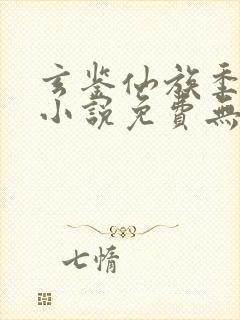 玄鉴仙族季
小說免費無
七情